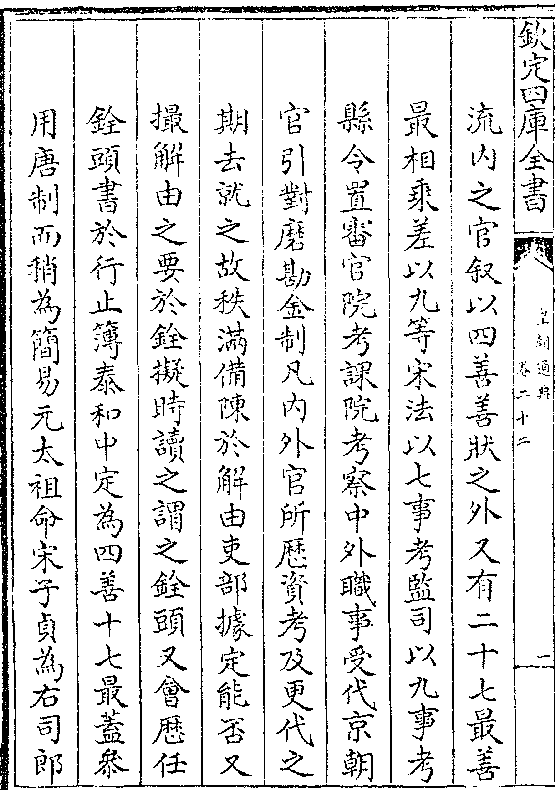 欽定四庫全書
皇朝通典
卷二十二
二
流内之官叙以四善善狀之外又有二十七最善
最相乘差以九等宋法以七事考監司以九事考
縣令置審官院考課院考察中外職事受代京朝
官引對磨勘金制凡内外官所歴資考及更代之
期去就之故秩滿備陳於解由吏部據定能否又
撮解由之要於銓擬時讀之謂之銓頭又會歴任
銓頭書於行止簿泰和中定為四善十七最蓋叅
用唐制而稍為簡易元太祖命宋子貞為右司郎